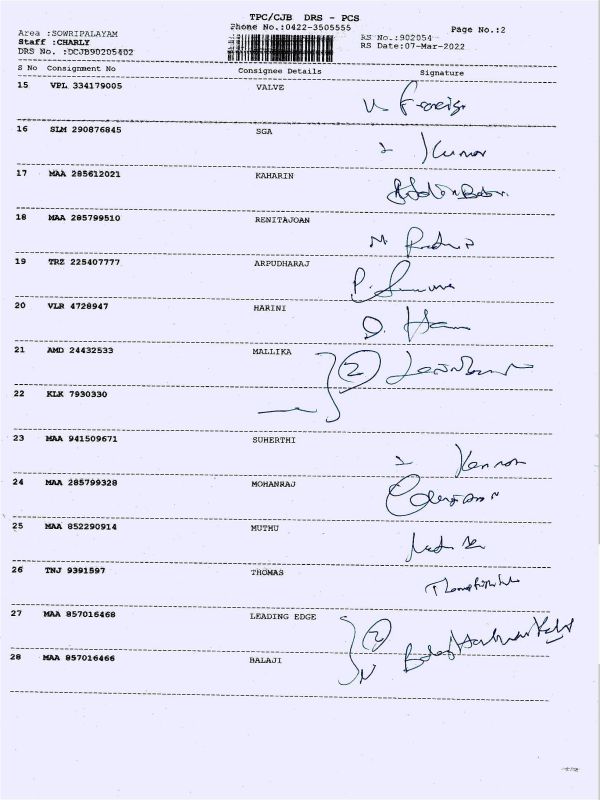 TPC/CJB DRS - PCS
Phone No.:0422-3505555
Page No.:2
Area :SOWRIPALAYAM
RS No.:902054
Staff :CHARLY
RS Date:07-Mar-2022
DRS No. :DCJB90205402
S No Consignment No Consignee Details Signature
15 VPL 334179005 VALVE
16 SLM 290876845 SGA
Kumar
17 MAA 285612021 KAHARIN
18 MAA 285799510 RENITAJOAN
M
19 TRZ 225407777 ARPUDHARAJ
P.
20 VLR 4728947 HARINI
D.
21 AMD 24432533 MALLIKA
2
22 KLK 7930330
23 MAA 941509671 SUHERTHI
24 MAA 285799328 MOHANRAJ
25 MAA 852290914 MUTHU
26 TNJ 9391597 THOMAS
27 MAA 857016468 LEADING EDGE
2
28 MAA 857016466 BALAJI
N